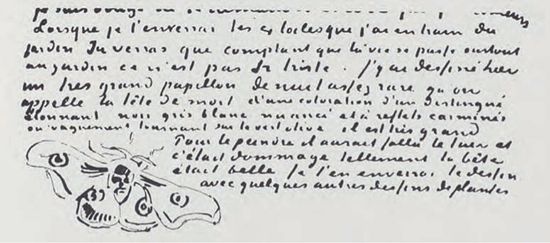 Lorsque je t'enverrai les 4 toiles que j'ai en train du
jardin tu verras que comptant que la vie se passe surtout
au jardin ce n'est pas si triste. J'y ai dessiné hier
un tres grand papillon de nuit assez rare qu'on
appelle la tête de mort d'une coloration d'un distingué
étonnant noir gris blanc nuancé et à reflets carminés
ou vaguement tournant sur le vert olive il est très grand
Pour le peindre il aurait fallu le tuer et
c'était dommage tellement la bête
était belle Je t'en enverrai le dessin
avec quelques autres dessins de plantes